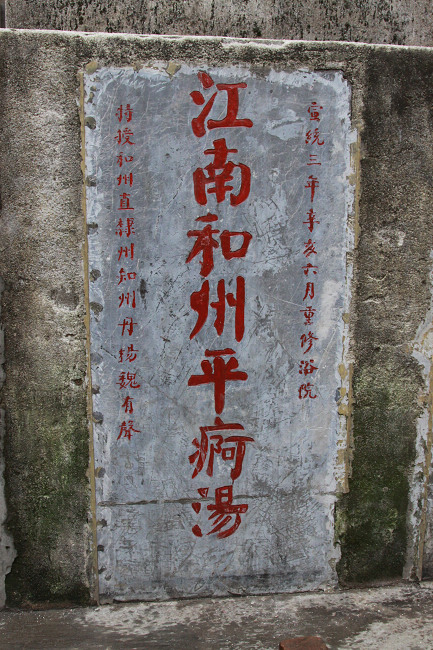 宣統三年辛亥六月重修浴院
江南和州平痾湯
特授和州直隸州知州丹揚魏有聲